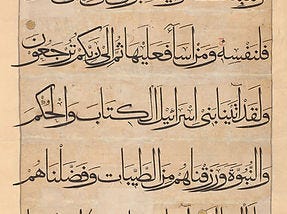 فلنفسه ومن أساء فعليها ثم إلى ربكم ترجعون
ولقد آتينا بني إسرائيل الكتاب والحكم
والنبوة ورزقناهم من الطيبات وفضلناهم